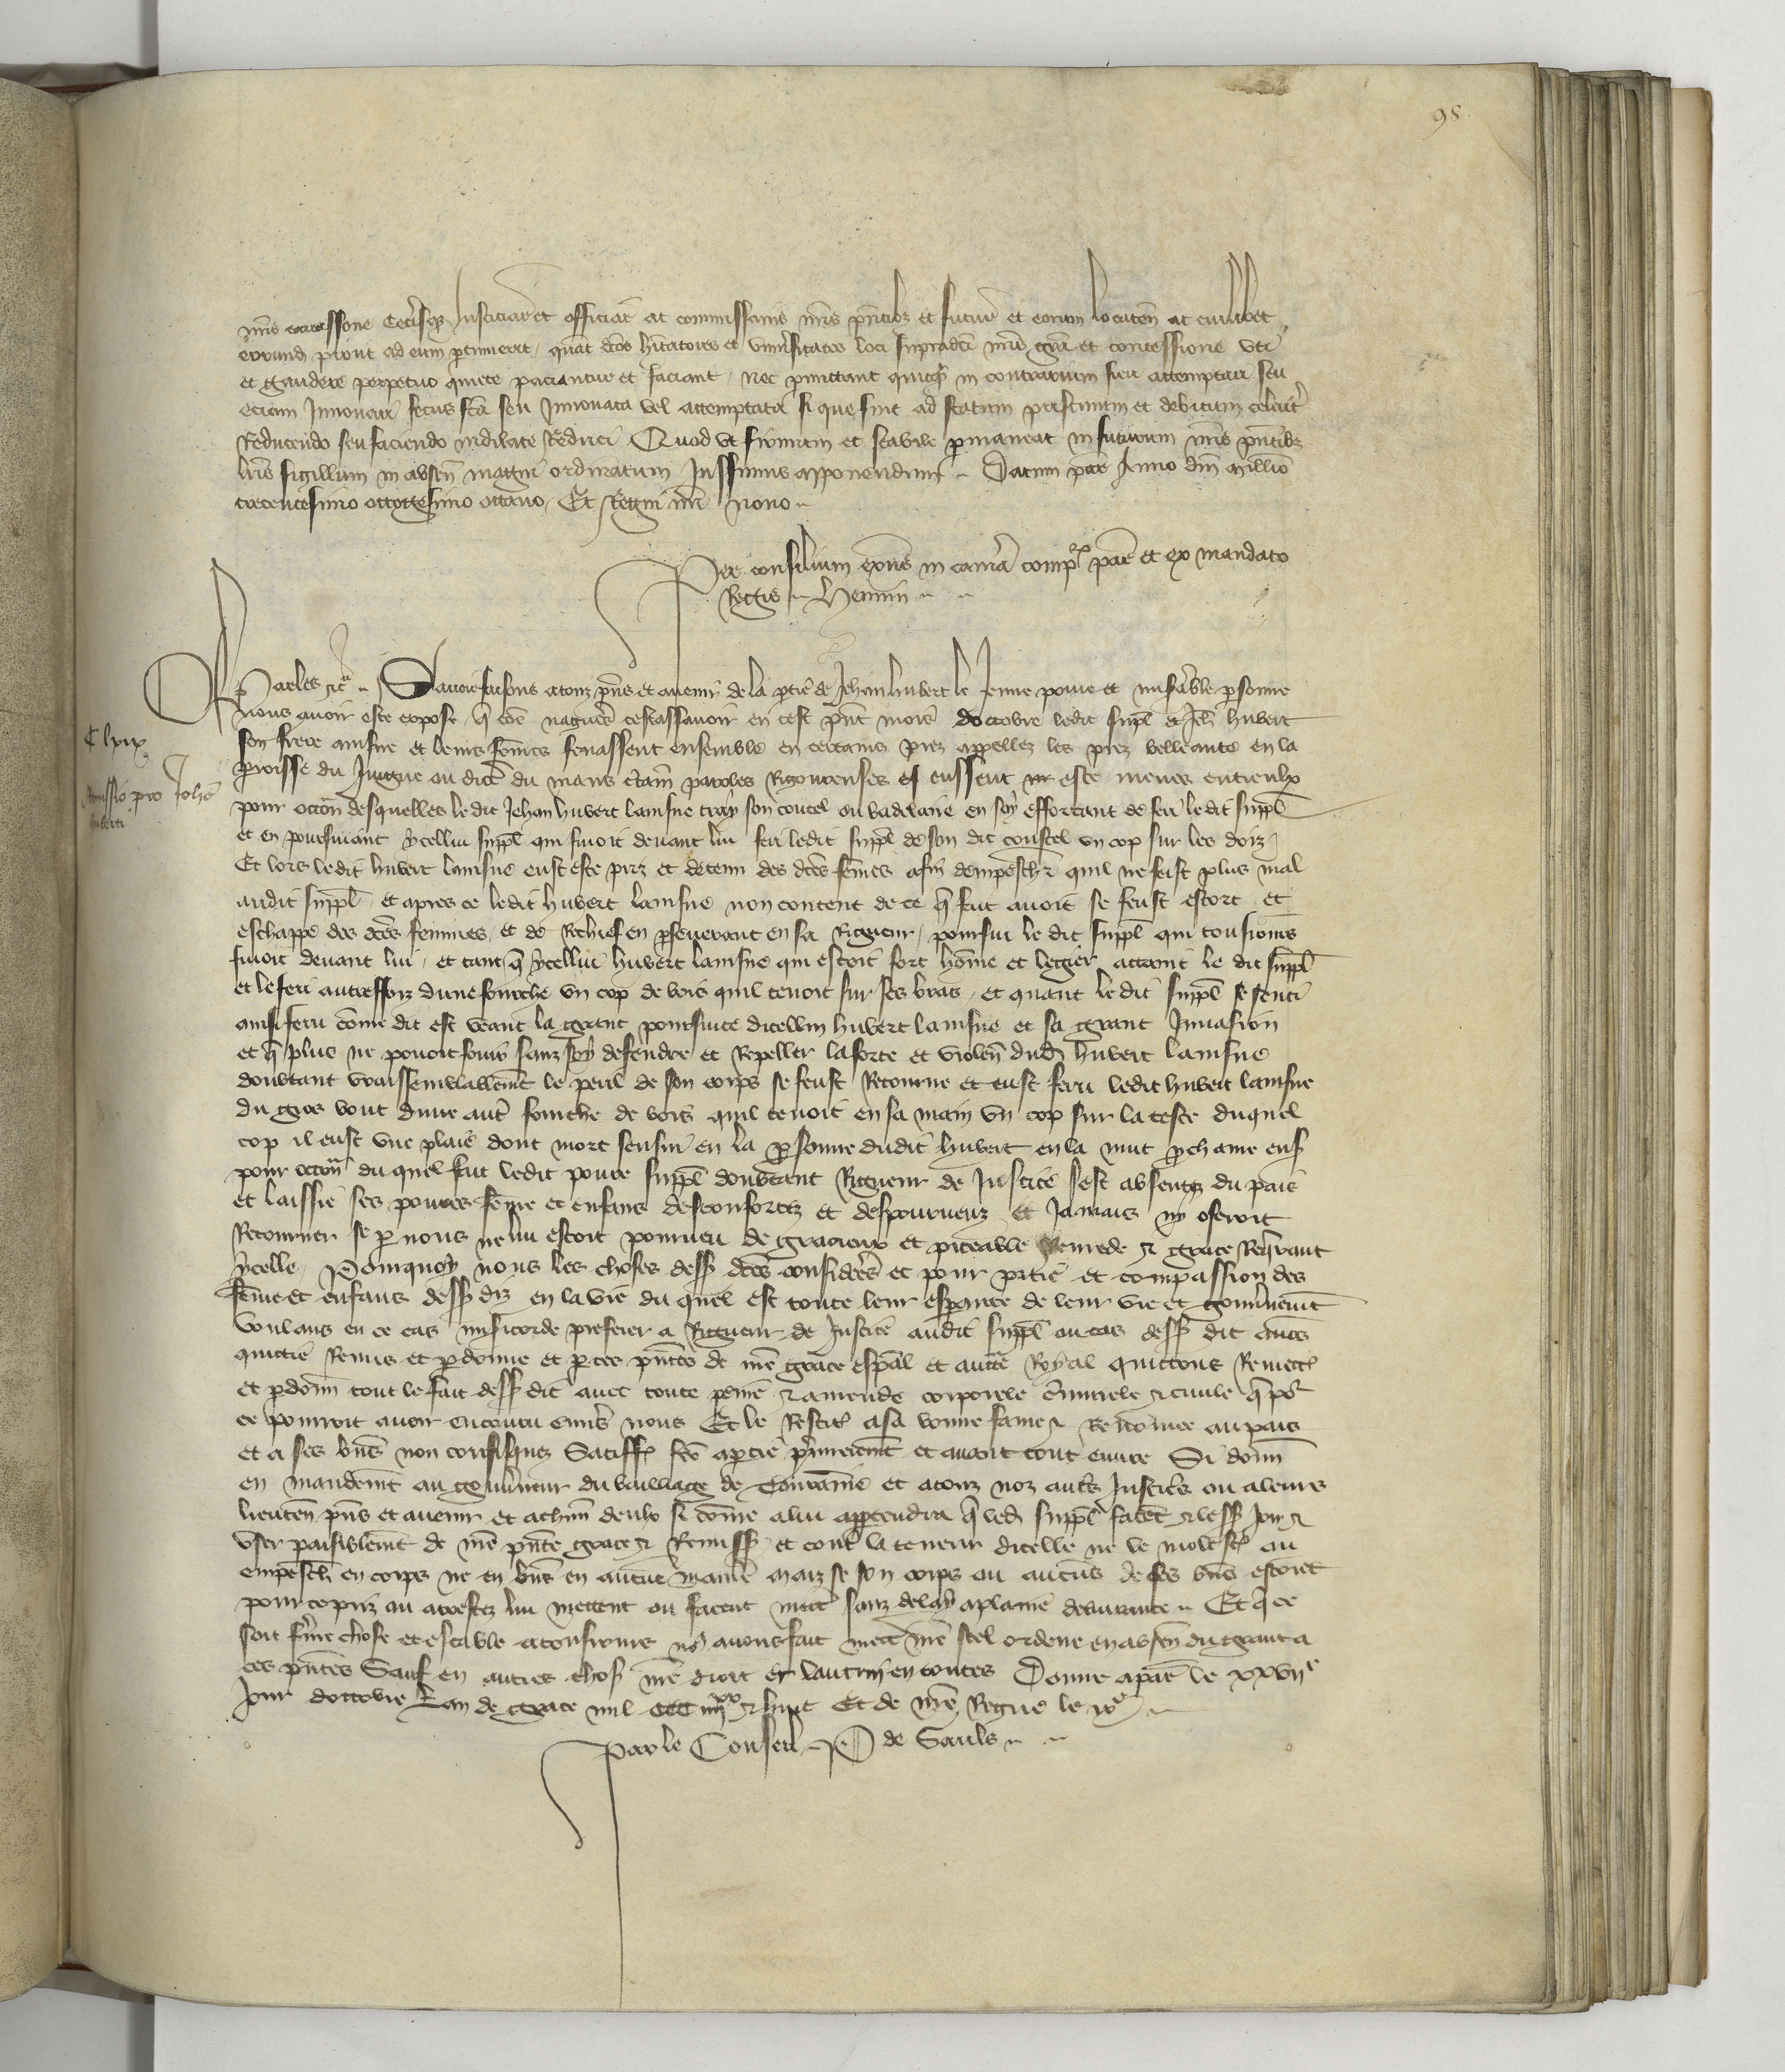 98
nris concessione Ceterisque Justiciar et officiar ac commissariis nris pntibz et futur et eorum locaten ac cuilibet
eorund prout ad eum ptinuerit quat dcos hitatores et univsitates loci supradci nris gra et concessione uti
et gaudere perpetuo quiete paciantur et faciant nec pmittant quicq in contrarium fieri attemptari seu
eciam Innovari secus fca seu Innovata vel attemptata si que sint ad statum pristinum et debitum celerit
Reducendo seu faciendo indilate Reduci Quod ut firmum et stabile pmaneat in futurum nris pntibz
lris sigillum in absen magni ordinatum Jussimus apponendum Datum par Anno dni millio
trecentesimo octogesimo octavo Et Regni nri nono
Per consilium exns in camera compor par et ex mandato
Regis Hennin
Charles etc Savoir faisons a touz pns et avenir de la ptie de Jehan hubert le Jeune povre et misable psonne
nous avoir este expose q coe nagueres cestassavoir en cest pnt mois doctobre ledit suppl et Jeh hubert
son frere ainsne et leurs femes fenassent ensemble en certains prez appellez les prez belleante en la
proisse du Jugne ou dioc du mans ctain paroles Rigoureuses eussent este meues entreulx
pour occon desquelles ledit Jehan hubert lainsne tray son coutel ou badelaire en soy efforcant de ferir ledit suppl
et en poursuiant ycellui suppl qui fuioit devant lui feri ledit suppl de son dit coustel un cop sur les doiz
Et lors ledit hubert lainsne eust este pris et detenu des dces femes afin dempeschr quil ne feist plus mal
audit suppl et apres ce ledit hubert lainsne non content de ce q fait avoit se feust estort et
eschappe des dces femmes et de Rechief en pseverant en sa Rigueur poursui le dit suppl qui tousiours
fuioit devant lui et tant q ycellui hubert lainsne qui estoit fort home et legier attaint le dit suppl
et le feri autressoiz dune fourche un cop de bois quil tenoit sur ses bras et quant le dit suppl se senti
ainsi feru come dit est veant la grant poursuite dicellui hubert lainsne et sa grant Invasion
et q plus ne povoit fouir sanz soy defendre et Repeller la force et violen dud hubert lainsne
doubtant vraissemblablemt le peril de son corps se feust Retourne et eust feru ledit hubert lainsne
du gros bout dune autre fourche de bois quil tenoit en sa main un cop sur la teste duquel
cop il eust une plaie dont mort sensui en la psonne dudit hubert en la nuit prchaine ens
pour occon du quel fait ledit povre suppl doubtant Rigueur de Justice sest absentez du pais
et laissie ses povres feme et enfans desconfortez et despourveuz et Jamais ny oseroit
Retourner se p nous ne lui estoit pourveu de gracieux et piteable Remede et grace Requerant
ycelle Pourquoy nous les choses dess dces considerees et pour pitie et compassion des
feme et enfans dess diz en la vie du quel est toute leur espance de leur vie et gouvnemt
voulans en ce cas misicorde preferer a Rigueur de Justice audit suppl ou cas dess dit avons
quictie Remis et pdonne et p ces pntes de nre grace espal et aucte Royal quictons Remett
et pdonn tout le fait dess dit avec toute peine et amende corporele criminele et civile q por
ce pourroit avoir encouru envers nous Et le Restit a sa bonne fame et Renomee au pais
et a ses biens non confisquez Satiff fce a ptie premieremt et avant tout euvre Si donn
en mandemt au gouvneur du bailliage de Touraine et a touz noz autres Justiciers ou a leurs
lieuten pns et avenir et a chun deulx si come a lui apptendra q led suppl facet et less Joir et
user paisiblemt de nre pnte grace et Remiss et cont la teneur dicelle ne le molest ou
empesch en corps ne en biens en aucune maniere maiz se son corps ou aucuns de ses biens estoient
pour ce priz ou arrestez lui mettent ou facent mett sanz delay a plaine delivrance Et q ce
soit ferme chose et estable a tousiours nos avons fait mett nre scel ordene en absen du grant a
ces pntes Sauf en autres chos nre droit et lautrui en toutes Donne a par le xxviie
Jour doctobre Lan de grace mil CCC iiiixx et huit Et de nre Regne le ixe
Par le Conseil P de Sauls
C lxix
Remissio pro Johe
huberti